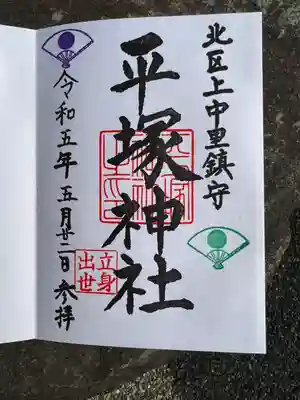 北区上中里鎮守
平塚神社
立身
出世
令和五年五月廿二日参拝